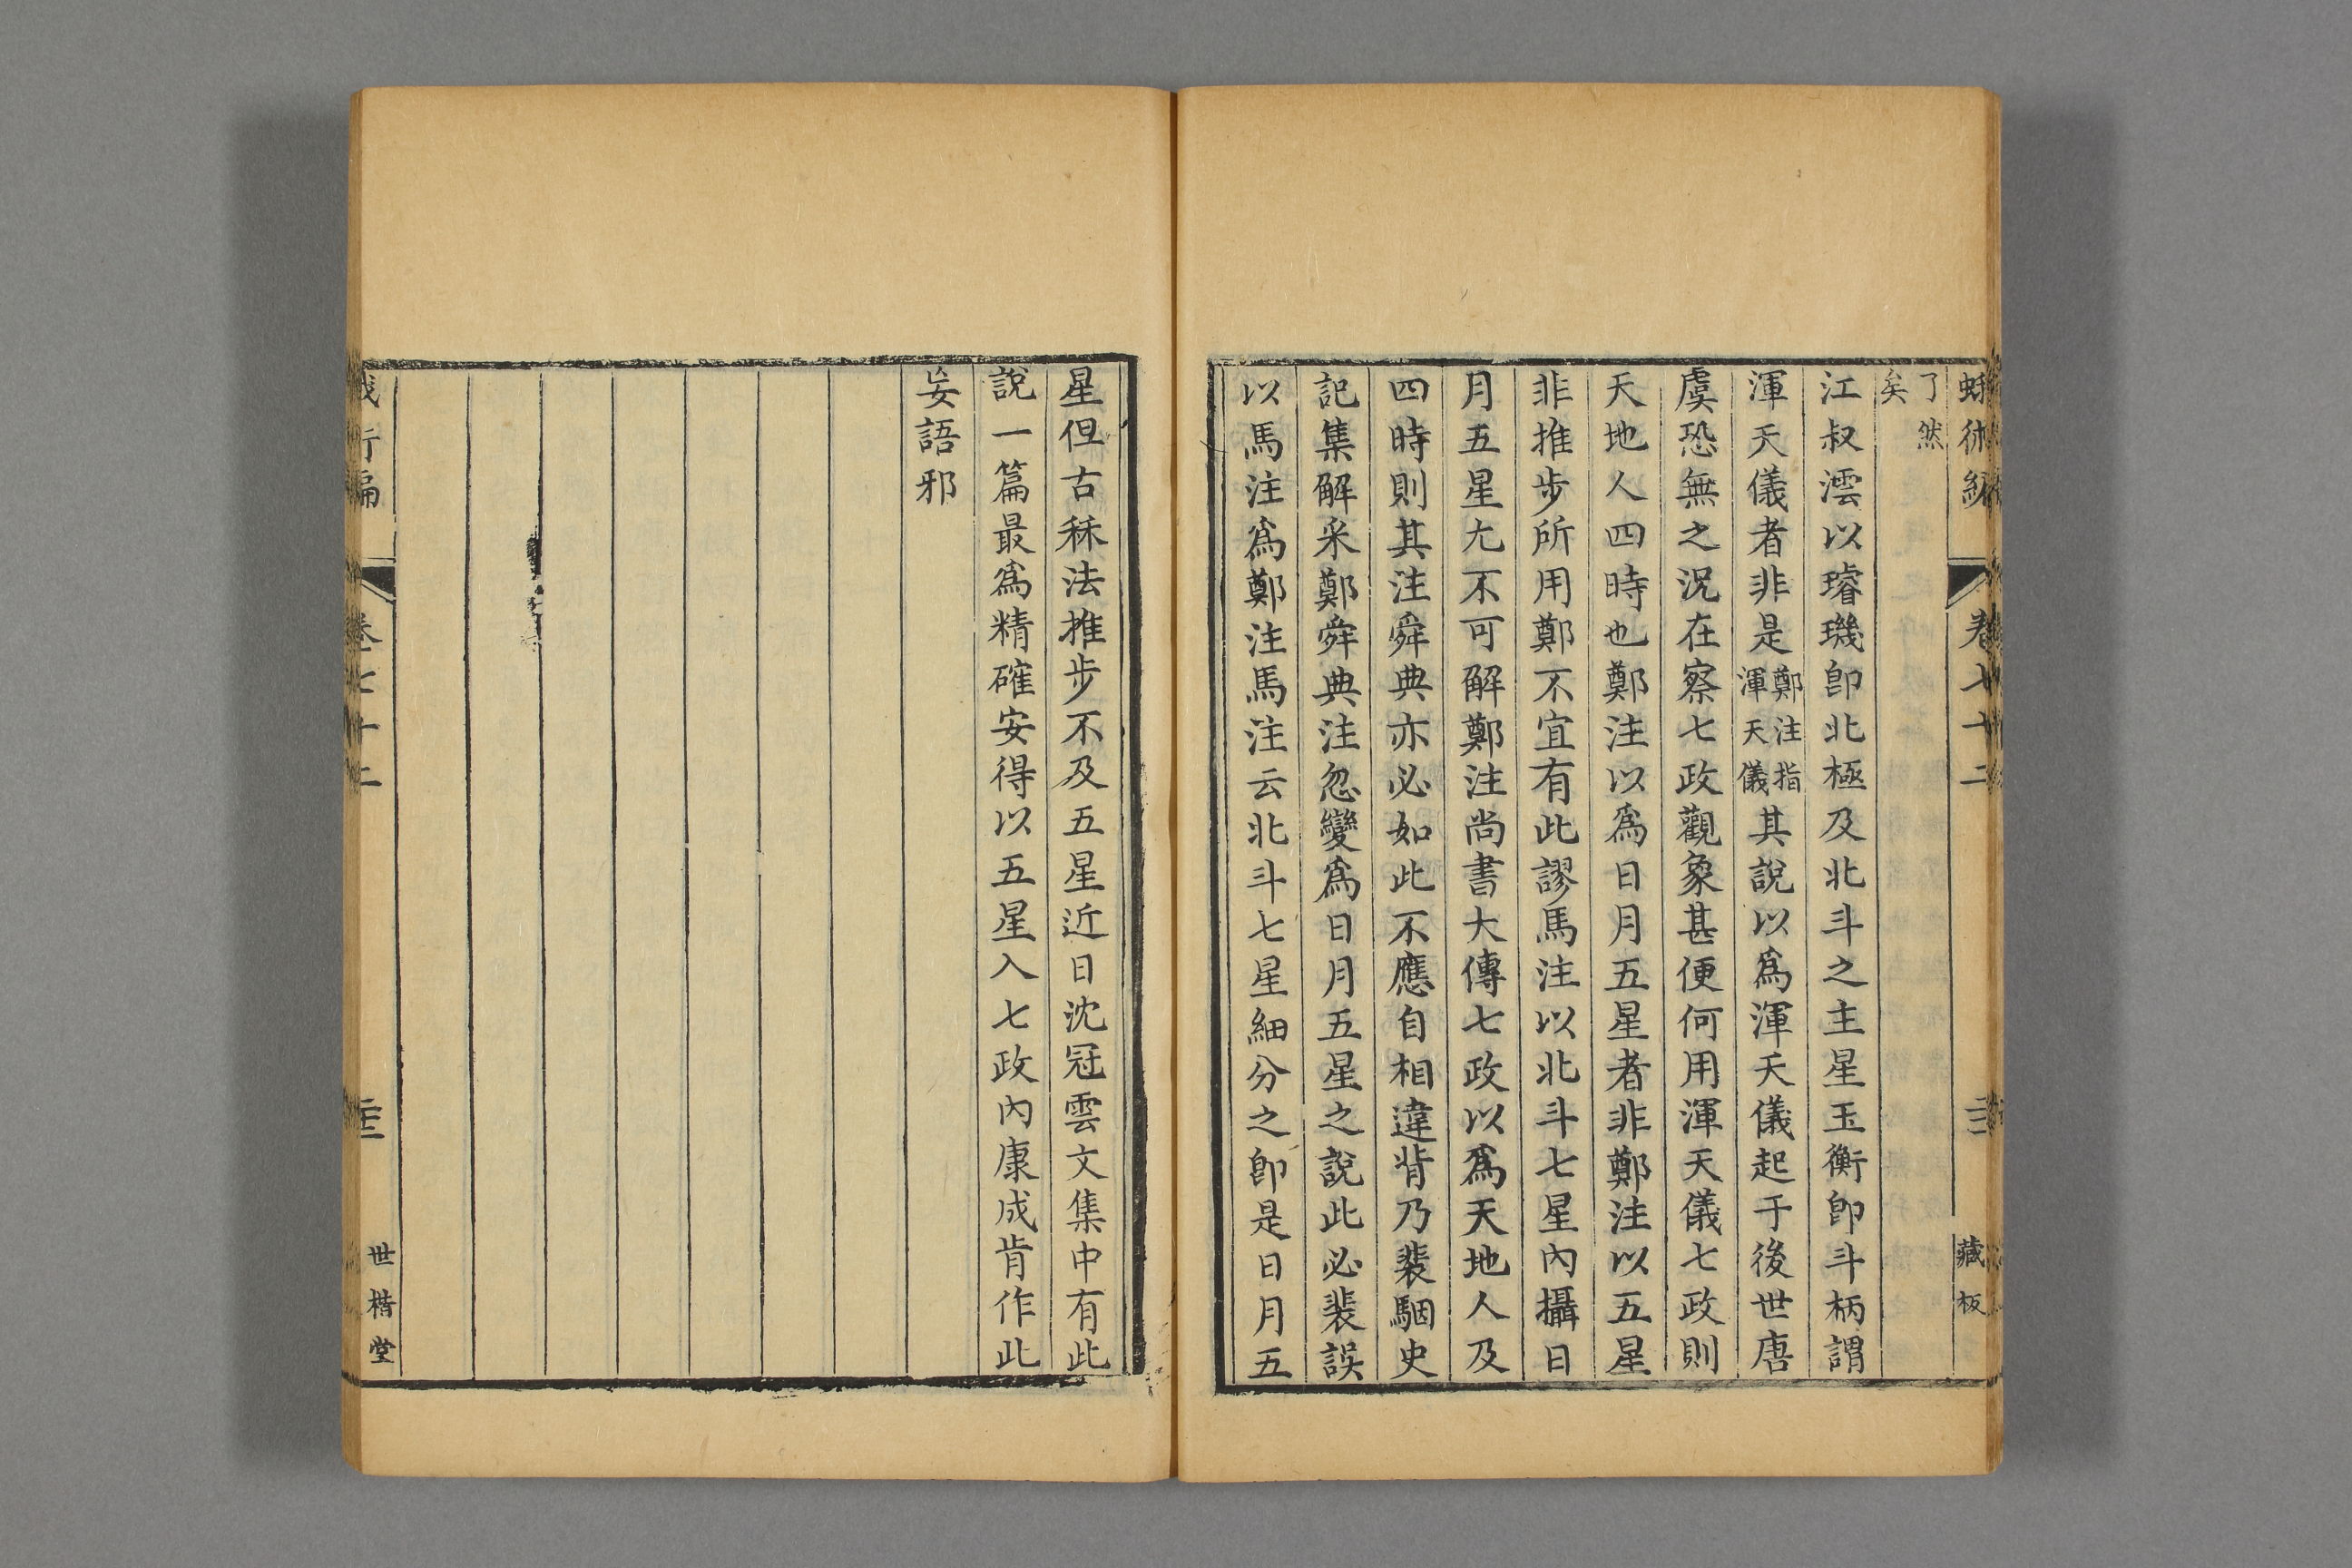 卷七十二
藏板
了然
矣
江叔澐以璿璣卽北極及北斗之主星玉衡卽斗柄謂
渾天儀者非是鄭注指渾天儀其說以爲渾天儀起于後世唐
虞恐無之況在察七政觀象甚便何用渾天儀七政則
天地人四時也鄭注以爲日月五星者非鄭注以五星
非推步所用鄭不宜有此謬馬注以北斗七星內攝日
月五星尢不可解鄭注尚書大傳七政以爲天地人及
四時則其注舜典亦必如此不應自相違背乃裴駰史
記集解采鄭舜典注忽變爲日月五星之說此必裴誤
以馬注爲鄭注馬注云北斗七星細分之卽是日月五
星但古秝法推步不及五星近日沈冠雲文集中有此
說一篇最爲精確安得以五星入七政內康成肯作此
妄語邪
卷七十二
世楷堂